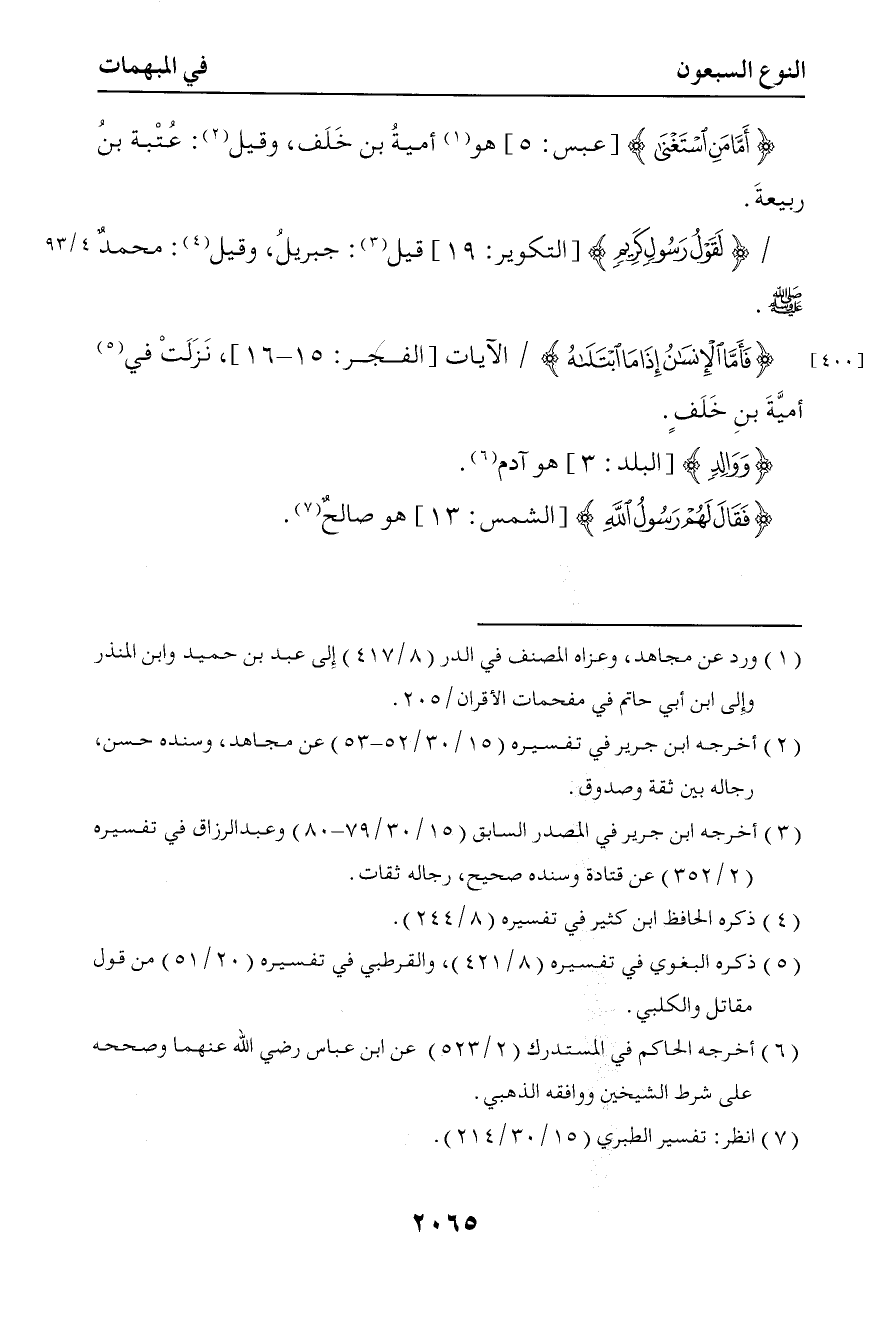 النوع السبعون في المبهمات
﴿ أَمَّا مَنِ ٱسْتَغْنَىٰ ﴾ [عبس: ٥] هو(١) أميةُ بن خَلَف، وقيل(٢): عُتْبة بنُ
ربيعةَ.
/ ﴿ لَقَوْلُ رَسُولٍ كَرِيمٍ ﴾ [التكوير: ١٩] قيل(٣): جبريلُ، وقيل(٤): محمدٌ ٩٣/٤
ﷺ.
[٤٠٠] ﴿ فَأَمَّا ٱلْإِنسَٰنُ إِذَا مَا ٱبْتَلَىٰهُ ﴾ / الآيات [الفجر: ١٥-١٦]، نَزَلَتْ في(٥)
أميَّةَ بنِ خَلَفٍ.
﴿ وَوَالِدٍ ﴾ [البلد: ٣] هو آدم(٦).
﴿ فَقَالَ لَهُمْ رَسُولُ ٱللَّهِ ﴾ [الشمس: ١٣] هو صالحٌ(٧).
(١) ورد عن مجاهد، وعزاه المصنف في الدر (٤١٧/٨) إلى عبد بن حميد وابن المنذر
وإلى ابن أبي حاتم في مفحمات الأقران/٢٠٥.
(٢) أخرجه ابن جرير في تفسيره (٥٢/٣٠/١٥-٥٣) عن مجاهد، وسنده حسن،
رجاله بين ثقة وصدوق.
(٣) أخرجه ابن جرير في المصدر السابق (٧٩/٣٠/١٥-٨٠) وعبدالرزاق في تفسيره
(٣٥٢/٢) عن قتادة وسنده صحيح، رجاله ثقات.
(٤) ذكره الحافظ ابن كثير في تفسيره (٢٤٤/٨).
(٥) ذكره البغوي في تفسيره (٤٢١/٨)، والقرطبي في تفسيره (٥١/٢٠) من قول
مقاتل والكلبي.
(٦) أخرجه الحاكم في المستدرك (٥٢٣/٢) عن ابن عباس رضي الله عنهما وصححه
على شرط الشيخين ووافقه الذهبي.
(٧) انظر: تفسير الطبري (٢١٤/٣٠/١٥).
٢٠٦٥